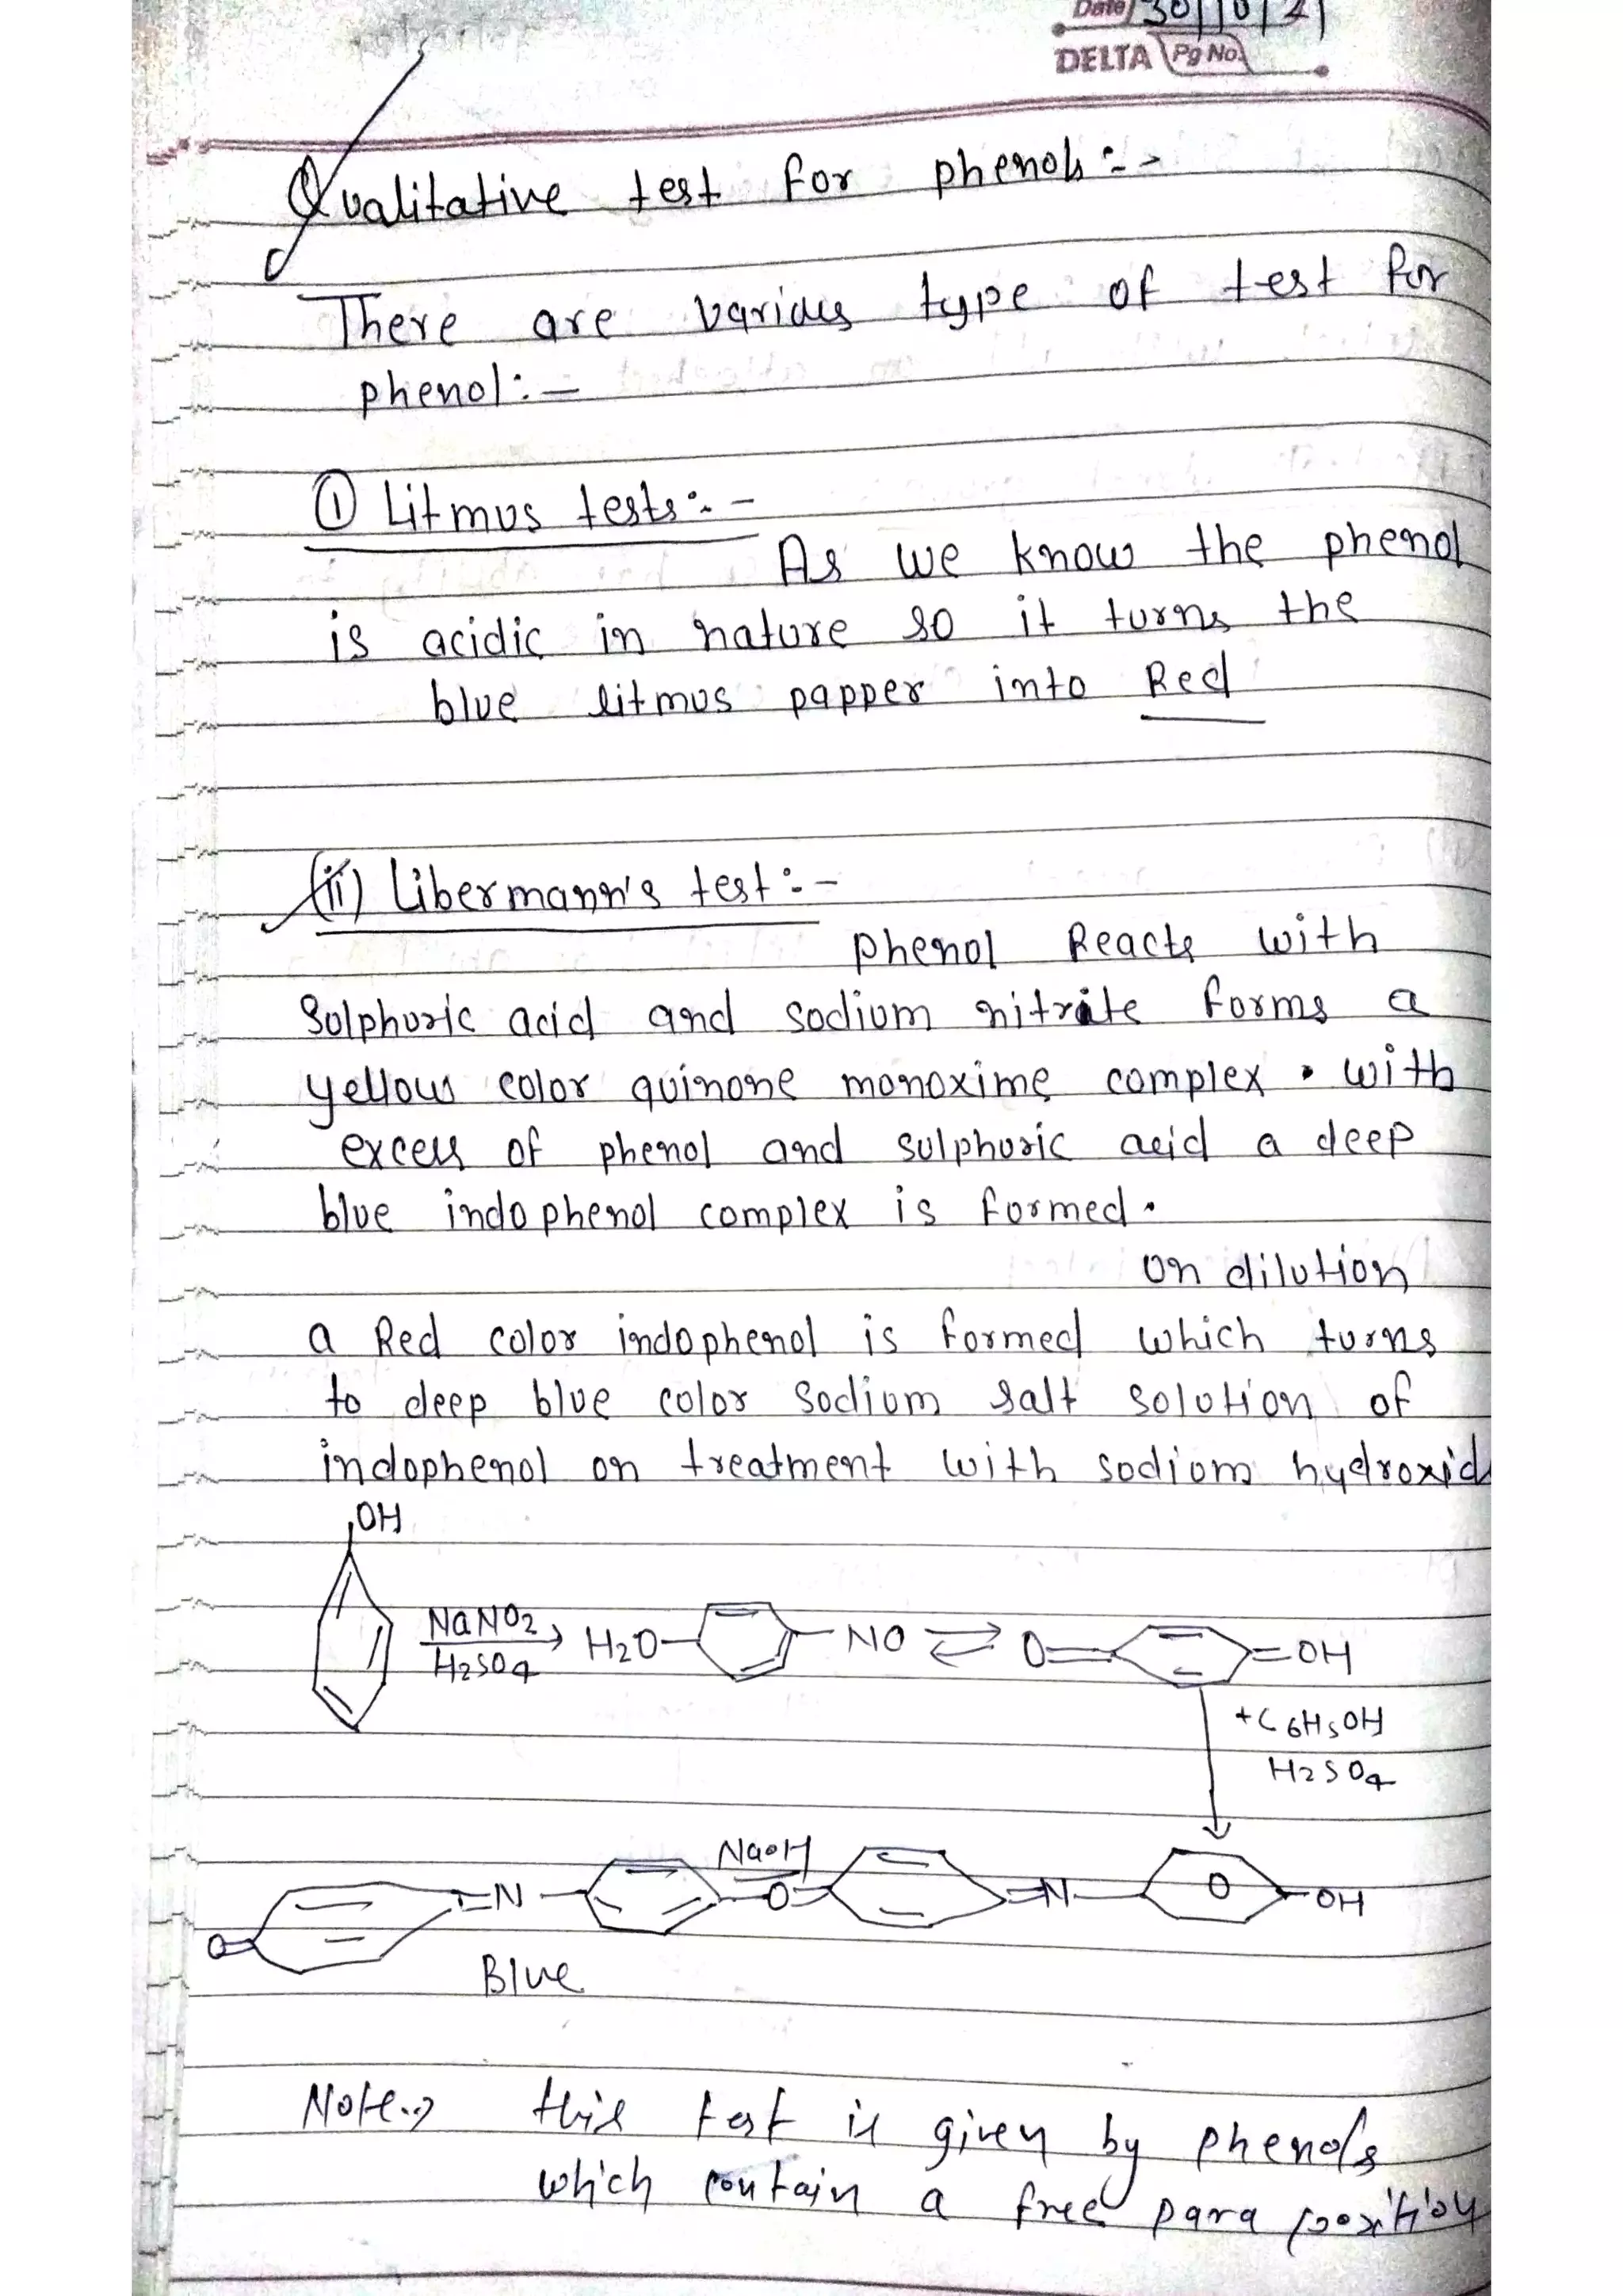 Date 30/10/21
DELTA Pg No.
Qualitative test for phenols :->
There are various type of test for
phenol :-
① Litmus tests :-
As we know the phenol
is acidic in nature so it turns the
blue litmus papper into Red
(ii) Libermann's test :-
phenol Reacts with
Sulphuric acid and sodium nitrite forms a
yellow color quinone monoxime complex. with
excess of phenol and sulphuric acid a deep
blue indophenol complex is formed.
on dilution
a Red color indophenol is formed which turns
to deep blue color sodium salt solution of
indophenol on treatment with sodium hydroxid
OH
NaNO2
H2SO4
H2O NO O OH
+C6H5OH
H2SO4
NaOH
O N O N O OH
Blue
Note.-> this test is given by phenols
which contain a free para position